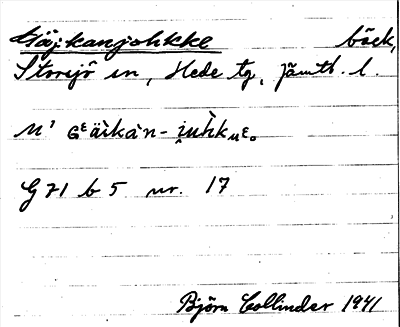 Gäjkanjohkke bäck,
Storsjö sn, Hede tg, Jämtl. l.
G 71 b 5 nr. 17
Björn Collinder 1941